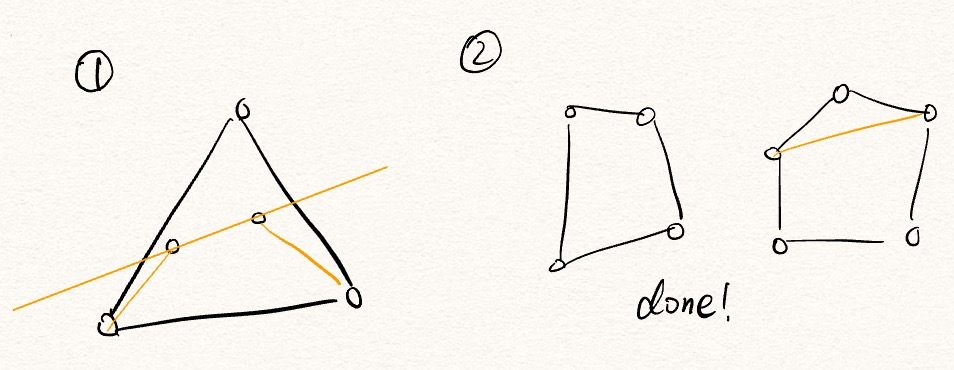 ①
②
done!